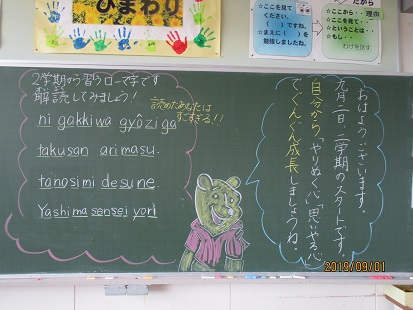 ひまわり
ください。
まえに
勉強しましたね。
から 理由
ここから・・・
ここを見て・・・
ということは
もし・・・
わけを話す
2学期から習うローマ字です
解読してみましょう!
読めたあなたは
すごすぎる!!
ni gakkiwa gyôzi ga
takusan arimasu.
tanosimi desune.
Yashima sensei yori
おはようございます。
九月二日、二学期のスタートです。
自分から「やりぬく心」「思いやる心」
で、ぐんぐん成長しましょうね。
2019/09/01